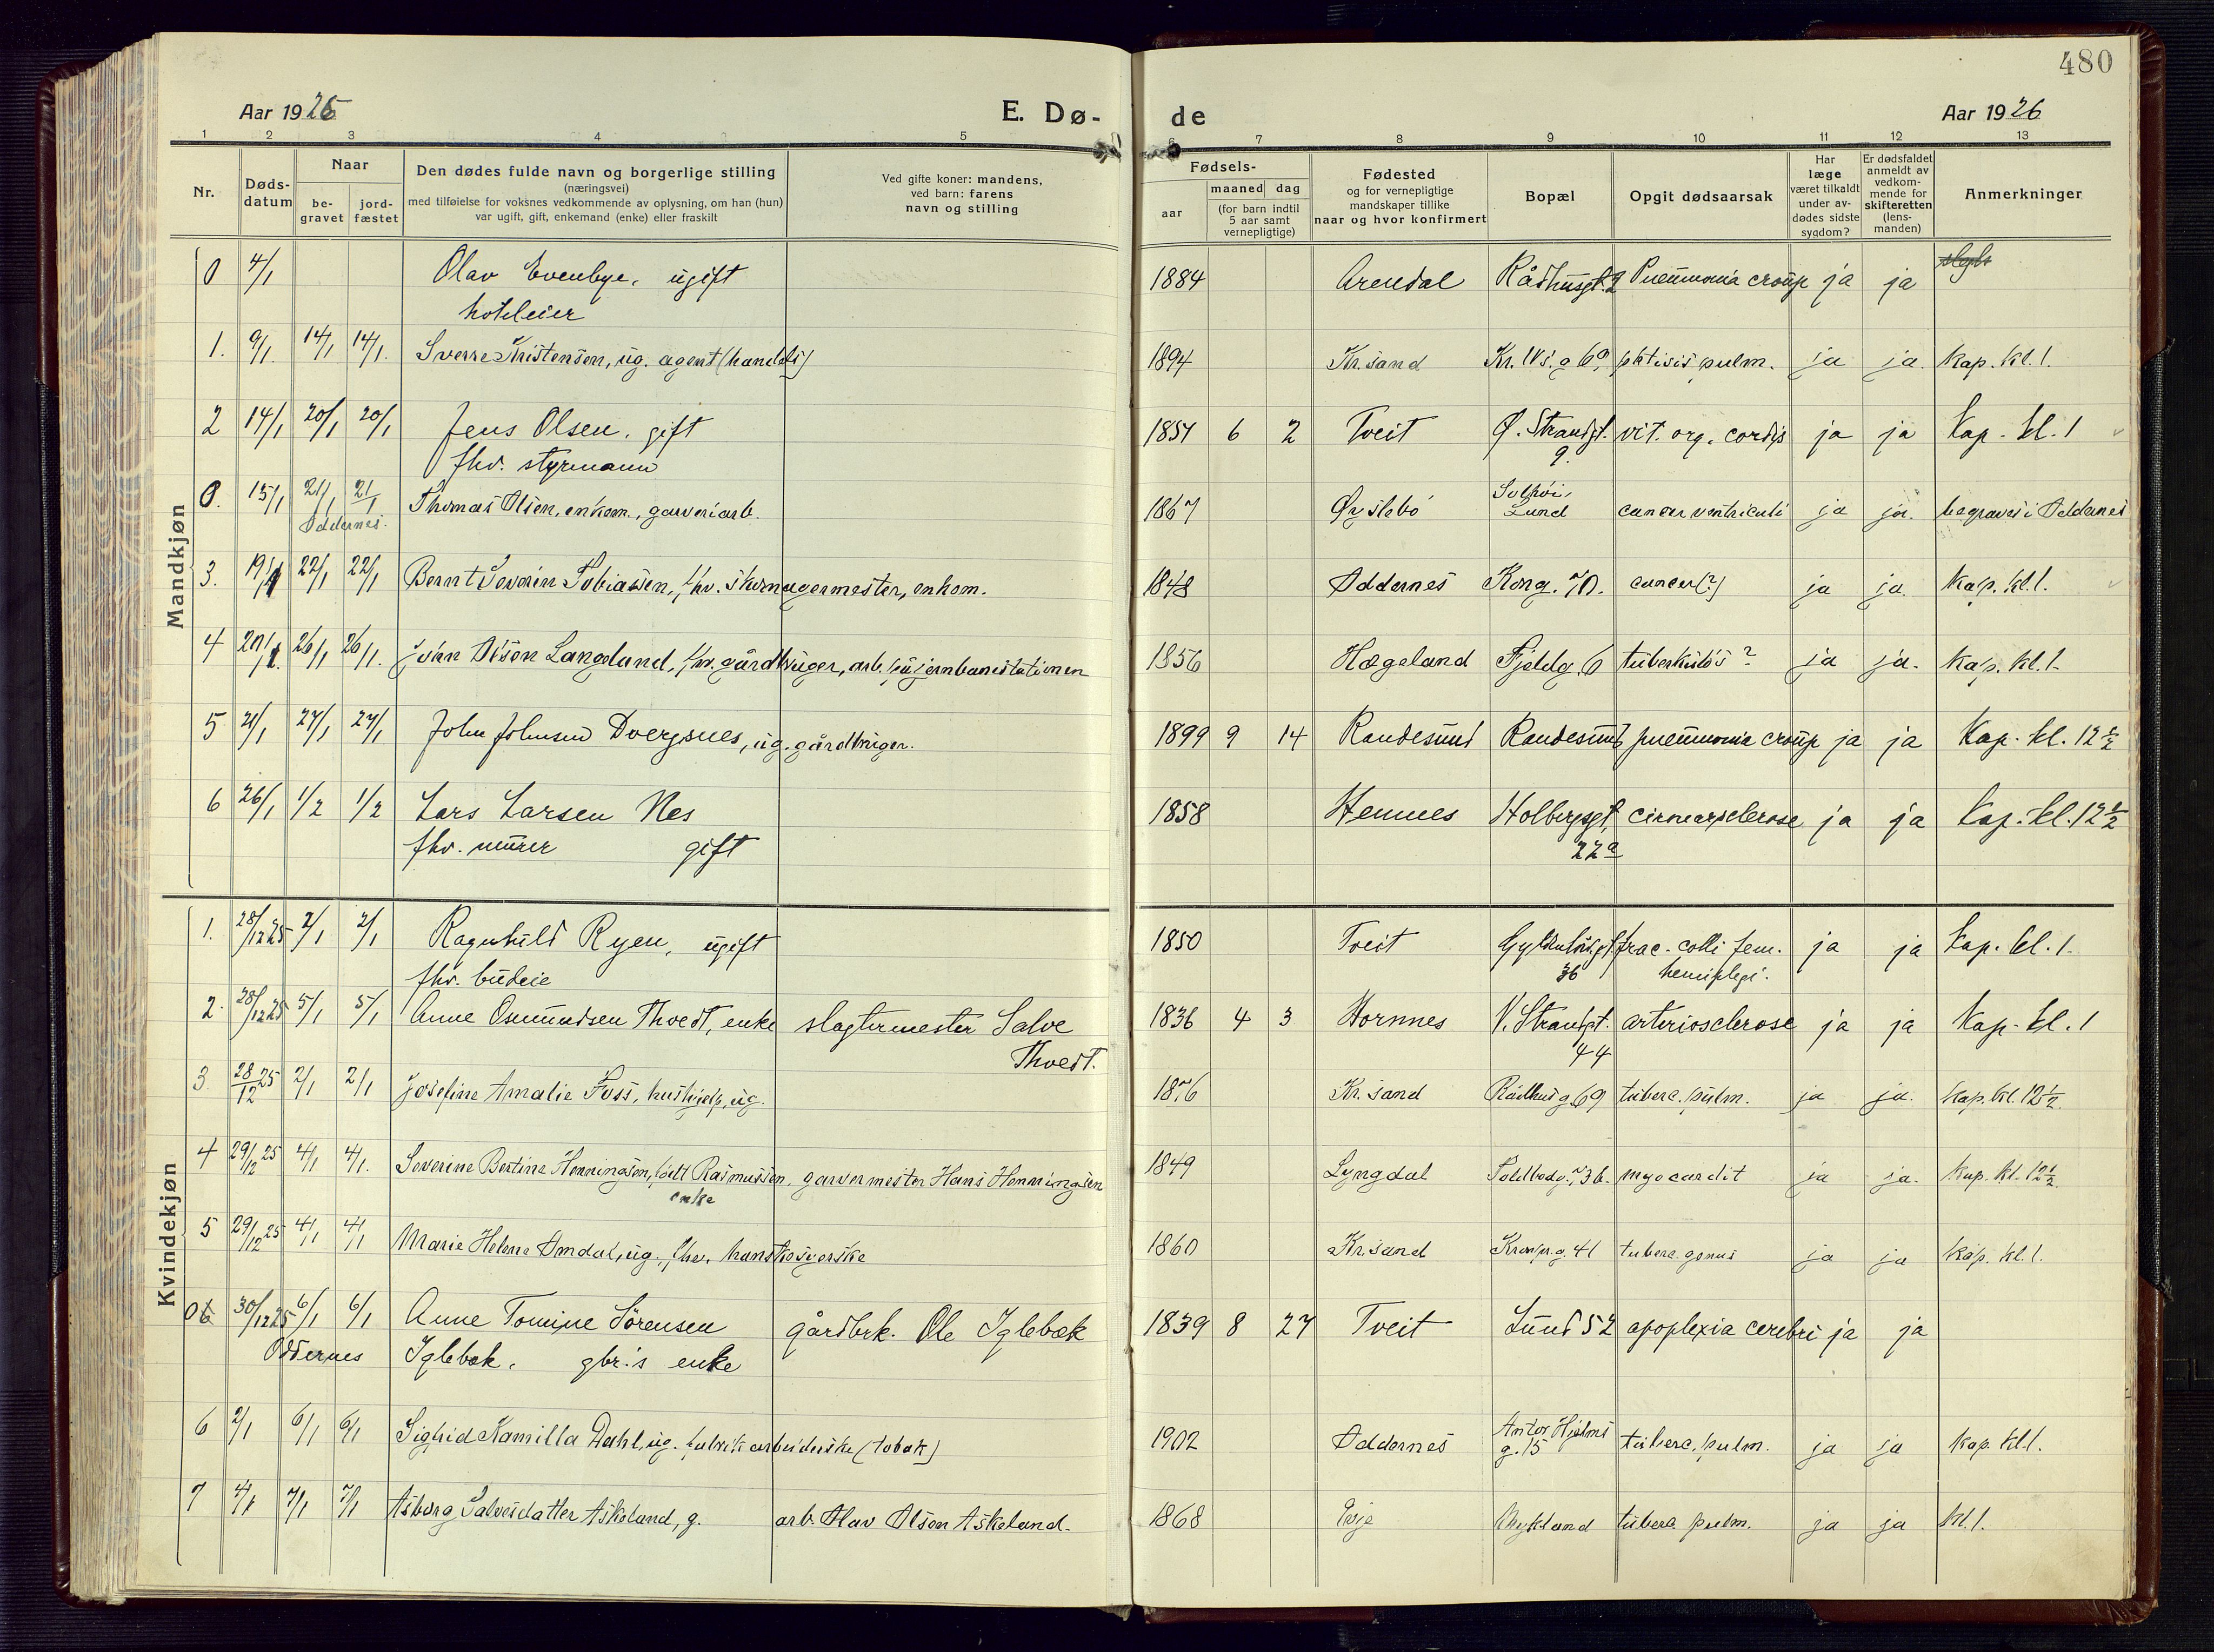 480
Aar 1926
E. Dø-
de
Aar 1926
1 2 3 4 5 6 7 8 9 10 11 12 13
Nr.
Døds-
datum
Naar
be-
gravet
jord-
fæstet
Den dødes fulde navn og borgerlige stilling
(næringsvei)
med tilføielse for voksnes vedkommende av oplysning, om han (hun)
var ugift, gift, enkemand (enke) eller fraskilt
Ved gifte koner: mandens,
ved barn: farens
navn og stilling
Fødsels-
aar
maaned dag
(for barn indtil
5 aar samt
vernepligtige)
Fødested
og for vernepligtige
mandskaper tillike
naar og hvor konfirmert
Bopæl
Opgit dødsaarsak
Har
læge
været tilkaldt
under av-
dødes sidste
sygdom?
Er dødsfaldet
anmeldt av
vedkom-
mende for
skifteretten
(lens-
manden)
Anmerkninger
Mandkjøn
0 4/1 Olav Evenbye, ugift 1884 Arendal Rådhusgt. 2 Pneumonia croup ja ja
hoteleier
1. 9/1. 14/1 14/1. Sverre Kristensen, ug. agent (handels) 1894 Kr.sand Kr. IVs. g 6a phtisis pulm. ja ja. Kap. kl. 1.
2 14/1 20/1 20/1 Jens Olsen, gift 1857 6 2 Tveit Ø. Strandgt. vit. org. cordis ja ja Kap. kl. 1
fhv. styrmann 9.
0. 15/1 21/1 21/1 Thomas Olsen, enkem., garveriarb. 1867 Øyslebö Solhøi, cancer ventriculi ja ja. begraves i Oddernes
Oddernes. Lund
3. 19/1 22/1 22/1 Bernt Severin Tobiassen, fhv. skomagermester, enkem. 1848 Oddernes Kong. 70. cancer (?) ja ja. Kap. kl. 1.
4 20/1. 26/1 26/1. John Olsen Langeland, fhv. gårdbruger, arb. på jernbanestationen 1856 Hægeland Fjeldg. 6 tuberkulös? ja ja. Kap. kl. 1.
5 21/1 27/1 27/1 John Johnsen Dvergsnes, ug. gårdbruger. 1899 9 14 Randesund Randesund pneumonia croup ja ja Kap. kl. 12 1/2
6 26/1 1/2 1/2 Lars Larsen Nes 1858 Hennes Holbergsgt. ja ja Kap. kl. 12 1/2
fhv. murer gift 22a
Kvindekjøn
1. 28/12 25 2/1 2/1 Ragnhild Ryen, ugift 1850 Tveit Gyldenlövsgt. frac. colli fem. ja ja Kap. kl. 1.
fhv. budeie 36 hemiplegi.
2. 28/12 25 5/1 5/1 Anne Osmundsen Thvedt, enke slagtermester Salve 1836 4 3 Hornnes V. Strandgt. arteriosclerose ja ja Kap. kl. 1
Thvedt. 44
3 28/12 25 2/1 2/1 Josefine Amalie Foss, hushjelp, ug. 1876 Kr.sand Rådhusg. 69 tuberc. pulm. ja ja. Kap. kl. 12 1/2.
4 29/12 25 4/1 4/1. Severine Bertine Henningsen, født Rasmussen, garvermester Hans Henningsen 1849 Lyngdal Toldbodg. 36. myocardit ja ja. Kap. kl. 12 1/2.
enke
5 29/12 25 4/1 4/1 Marie Helene Omdal, ug., fhv. hanskesyerske 1860 Kr.sand Kronpr.g. 41 tuberc. genus ja ja Kap. kl. 1.
0 30/12 25 6/1 6/1 Anne Tomine Sörensen gårdbrk. Ole Iglebæk 1839 8 27 Tveit Lund 52 apoplexia cerebri ja ja
Oddernes Iglebæk. gbr.'s enke
6 2/1 6/1 6/1 Sigrid Kamilla Dahl, ug. fabrikarbeiderske (tobak) 1902 Oddernes Anton Hjelms tuberc. pulm. ja ja Kap. kl. 1.
g. 15
7 4/1 7/1 7/1 Asborg Salvesdatter Askeland, g. arb. Olav Olsen Askeland. 1868 Evje Mykland tuberc. pulm. ja ja kl. 1.